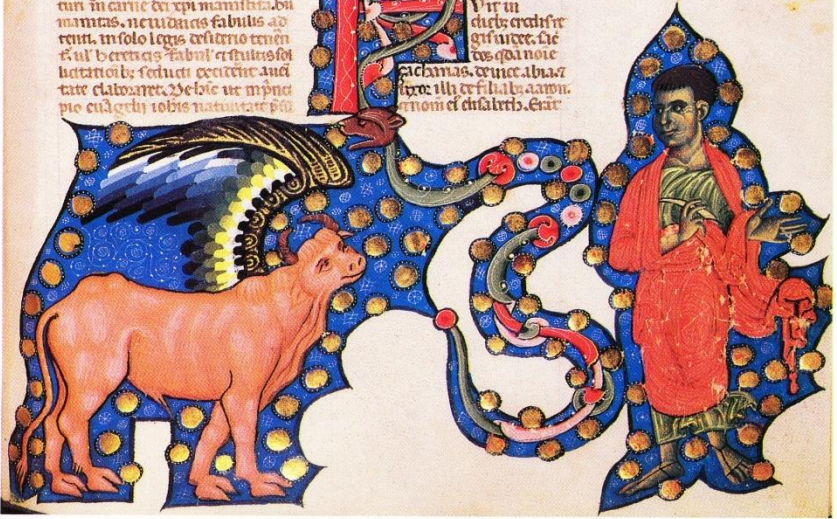 turi in carne dei xpi manifesta. hu
manitas. ne iudaicis fabulis ad
tenti. in solo legis desiderio tenen
t. ul' hereticis fabul' et stultis sol
licitatioib; seducti exciderent a ueri
tate elaboraret. Dehinc ut in pnci
pio euāgelii iohis natiuitate
it in
dieb; erodis re
gis iudee. sac
dos qda noie
zacharias. de uice abia. 
uxor illi de filiab; aaron.
et nom ei elisabeth. Erāt